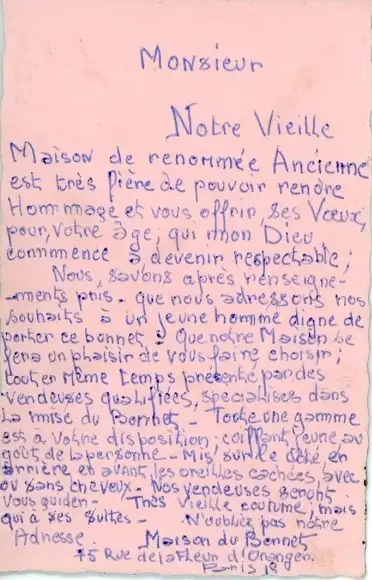 Monsieur
Notre Vieille
Maison de renommée Ancienne
est très fière de pouvoir rendre
Hommage et vous offrir, ses Vœux,
pour, votre âge, qui mon Dieu
commmence à devenir respectable ;
Nous, savons après renseigne-
-ments pris - que nous adressons nos
souhaits à un jeune homme digne de
porter ce bonnet - Que notre Maison se
fera un plaisir de vous faire choisir ;
tout en Même temps présenté par des
vendeuses qualifiées, spécialisées dans
La mise du Bonnet. - Toute une gamme
est à Votre disposition, coiffant jeune au
goût de la personne - Mis, sur le côté en
arrière en avant, les oreilles cachées, avec
ou sans cheveux - Nos vendeuses seront
vous guider - Très Vieille coutume, mais
qui a ses suites - N'oubliez pas notre
Adresse Maison du Bonnet
75 Rue de la Fleur d'Oranger.
Paris 1º